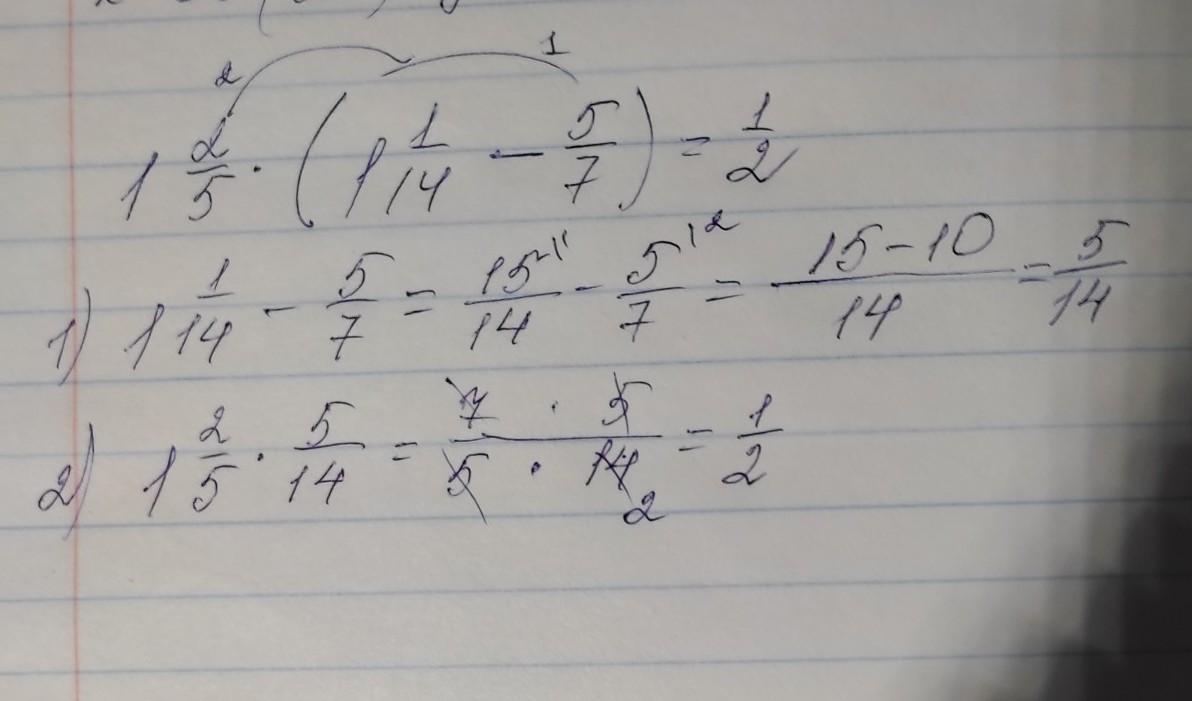 2 1
1 2/5 · (1 1/14 - 5/7) = 1/2
1) 1 1/14 - 5/7 = 15/14 - 5/7 = 15-10/14 = 5/14
2) 1 2/5 · 5/14 = 7 · 5/5 · 14 = 1/2
2